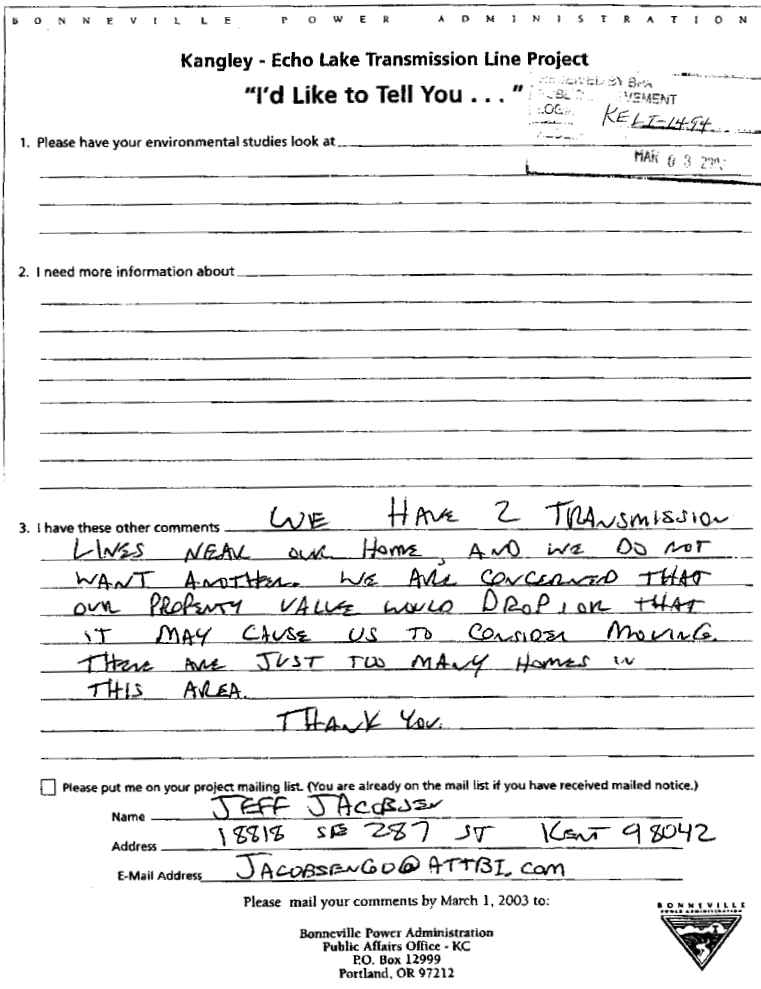 BONNEVILLE POWER ADMINISTRATION
Kangley - Echo Lake Transmission Line Project
"I'd Like to Tell You . . . "
RECEIVED BY BPA
KELT-1494
MAR 03
1. Please have your environmental studies look at
2. I need more information about
3. I have these other comments WE HAVE 2 TRANSMISSION
LINES NEAR OUR HOME, AND WE DO NOT
WANT ANOTHER. WE ARE CONCERNED THAT
OUR PROPERTY VALUE WOULD DROP, OR THAT
IT MAY CAUSE US TO CONSIDER MOVING.
THERE ARE JUST TOO MANY HOMES IN
THIS AREA.
THANK YOU.
Please put me on your project mailing list. (You are already on the mail list if you have received mailed notice.)
Name JEFF JACOBSEN
Address 18818 SE 287 ST KENT 98042
E-Mail Address JACOBSENGO@ATTBI.com
Please mail your comments by March 1, 2003 to:
Bonneville Power Administration
Public Affairs Office - KC
P.O. Box 12999
Portland, OR 97212
BONNEVILLE
POWER ADMINISTRATION